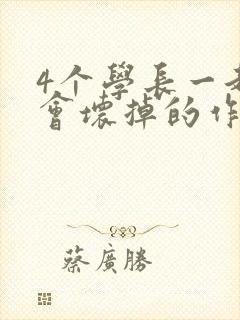 4个學長一起
會壞掉的作
蔡廣勝